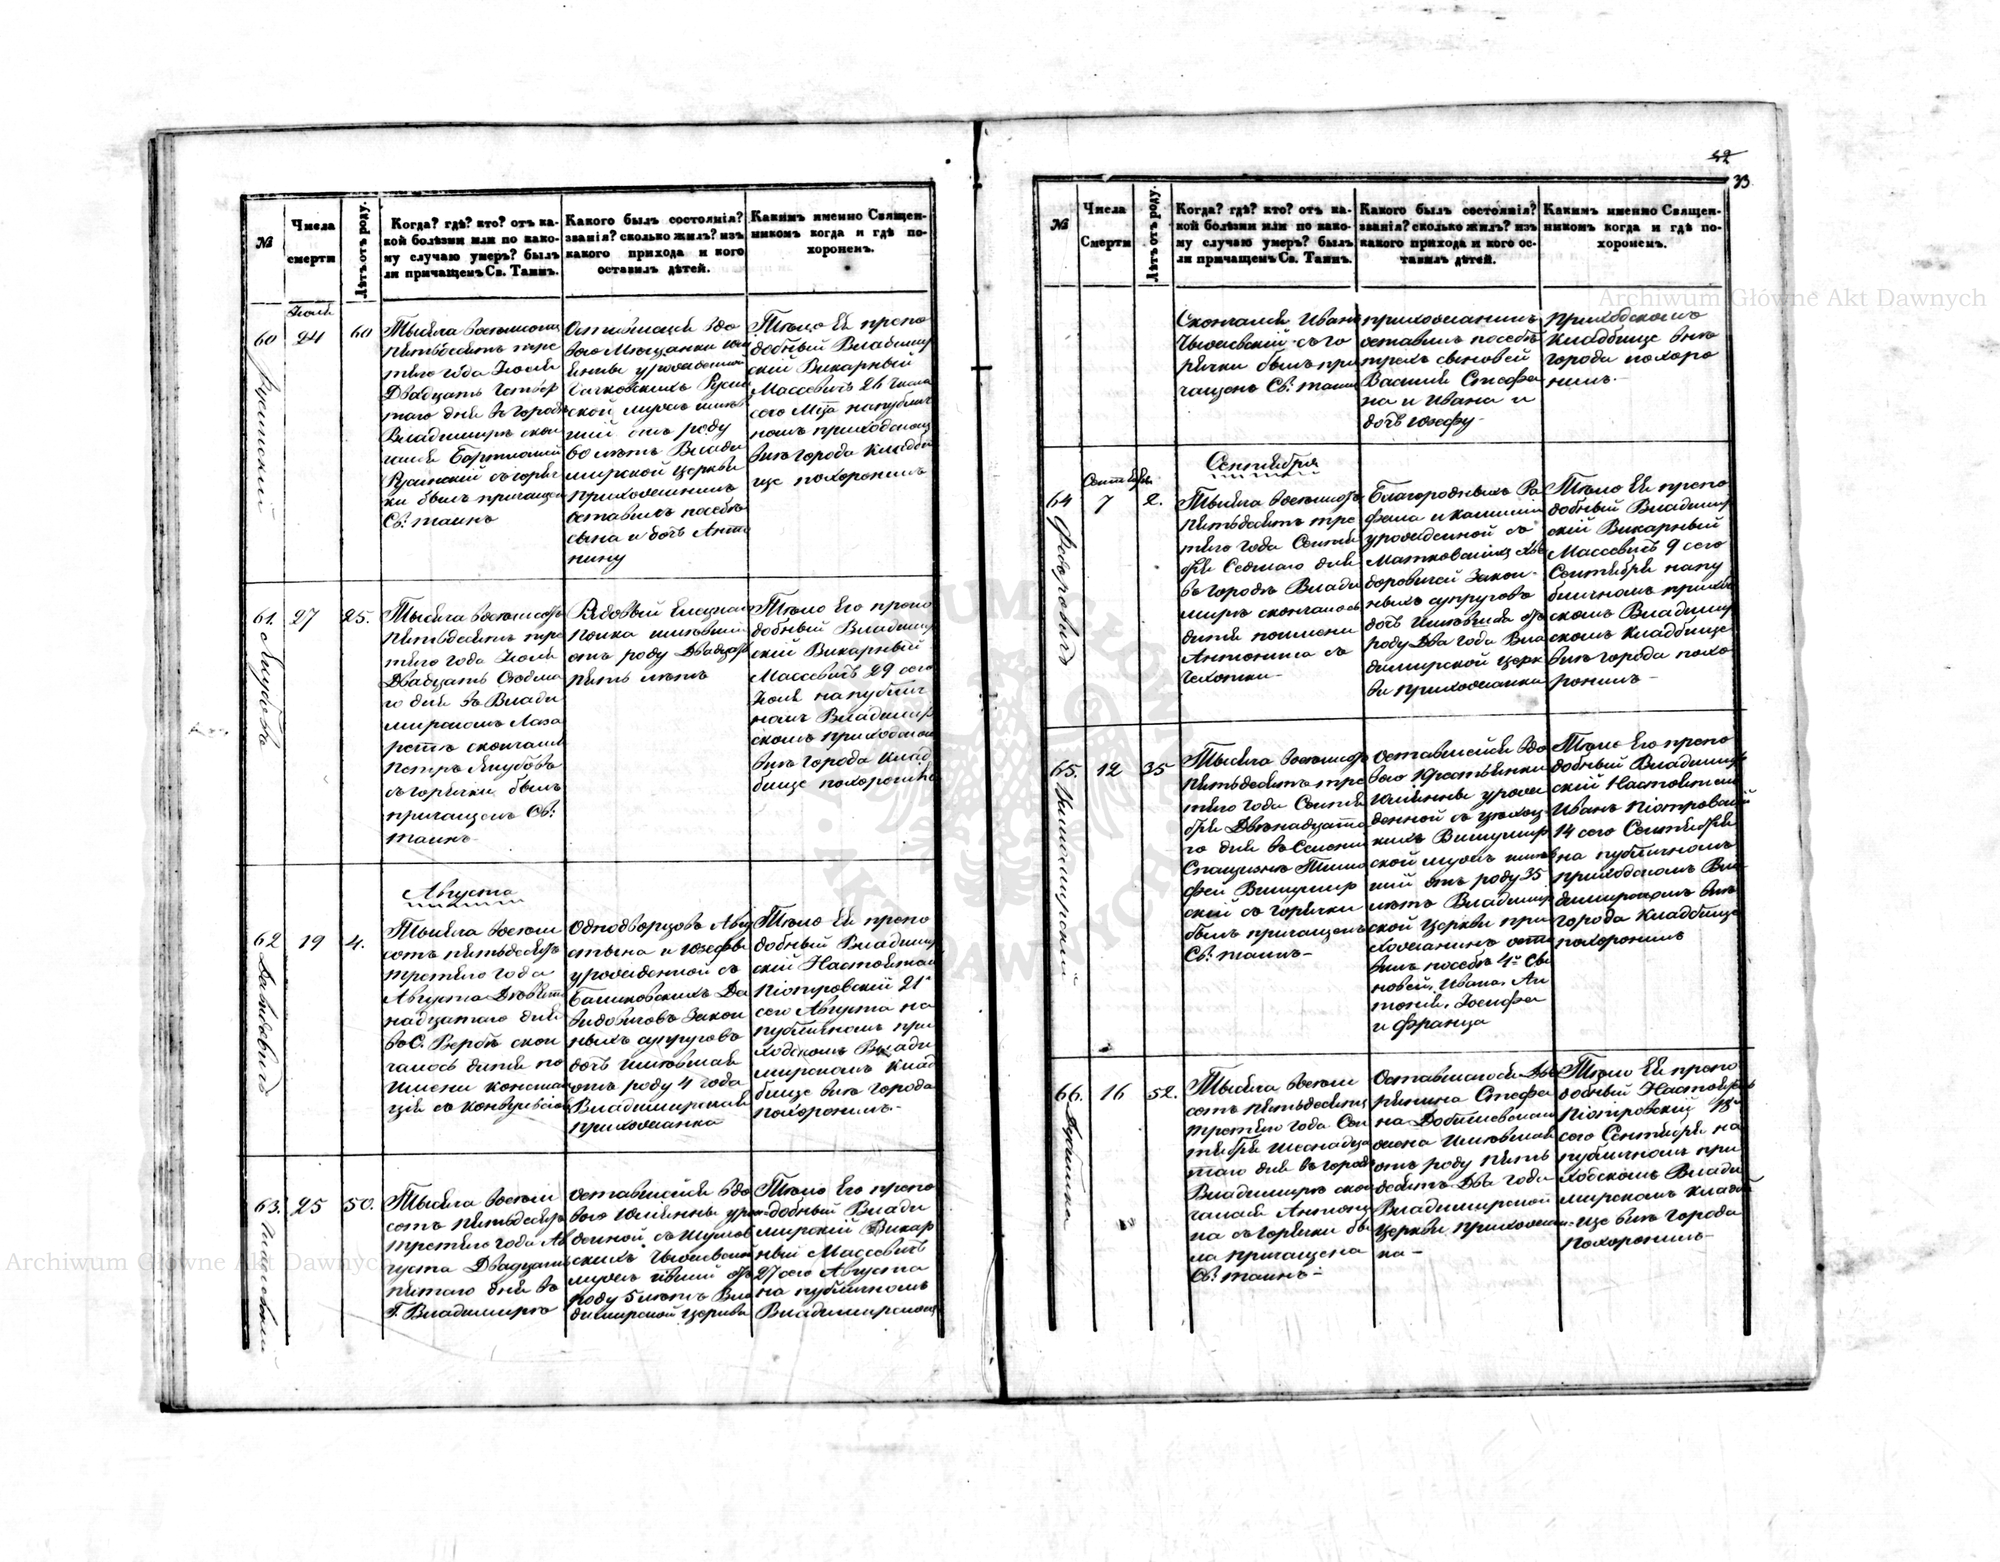 №
Числа
смерти
Лѣтъ отъ роду.
Когда? гдѣ? кто? отъ ка-
кой болѣзни или по како-
му случаю умеръ? былъ
ли причащенъ Св. Таинъ.
Какого былъ состоянія?
званія? сколько жилъ? изъ
какого прихода и кого
оставилъ дѣтей.
Какимъ именно Священ-
никомъ когда и гдѣ по-
хороненъ.
Іюль
60
24
60
Тысяча восемьсотъ
пятьдесятъ тре
тяго года Іюля
Двадцать Четвер
таго дня въ городѣ
Владимирѣ скон
чался
съ горяч
ки былъ причащенъ
Св. таинъ
Оставшейся вдо
вою Мѣщанки
урожденной
ской мужъ имѣв
шій отъ роду
60 лѣтъ Влади
мирской Церкви
прихожанинъ
оставилъ посебѣ
сына и дочь Анто
нину
Тѣло Ея препо
добный Владимир
скій Викарный
Массевичъ 26 числа
сего М̃ца на публич
номъ приходскомъ
внѣ города кладби
ще похоронилъ
61.
27
25.
Тысяча восемьсотъ
пятьдесятъ тре
тяго года Іюля
Двадцать Седьма
го дня въ Влади
мирскомъ Лаза
ретѣ скончался
Петръ Якубовъ
съ горячки былъ
причащенъ Св.
таинъ
Рядовый Елецкаго
полка имѣвшій
отъ роду Двадцать
пять лѣтъ
Тѣло Его препо
добный Владимир
скій Викарный
Массевичъ 29 сего
Іюля на публич
номъ Владимир
скомъ приходскомъ
внѣ города клад
бище похоронилъ
Августа
62
Давидовичъ
19
4.
Тысяча восемь
сотъ пятьдесятъ
третяго года
Августа Девят
надцатаго дня
въ С. Вербѣ скон
чалось дитя по
имени Констан
ція съ конвульсіи
Однодворцовъ Авгу
стына и Юзефы
урожденной съ
Башковскихъ Да
видовичовъ Закон
ныхъ супруговъ
дочь имѣвшая
отъ роду 4 года
Владимирская
прихожанка
Тѣло Ея препо
добный Владимир
скій Настоятель
Піотровскій 21
сего Августа на
публичномъ при
ходскомъ Влади
мирскомъ клад
бище внѣ города
похоронилъ
63.
25
50.
Тысяча восемь
сотъ пятьдесятъ
третяго года Ав
густа Двадцать
пятаго дня въ
Г. Владимирѣ
Оставшейся вдо
вою Юлянны уро
жденной съ
скихъ
мужъ имѣвшій отъ
роду 5 лѣтъ Вла
димирской Церкви
Тѣло Его препо
добный Влади
мирскій Викар
ный Массевичъ
27 сего Августа
на публичномъ
Владимирскомъ
52
33
№
Числа
Смерти
Лѣтъ отъ роду.
Когда? гдѣ? кто? отъ ка-
кой болѣзни или по како-
му случаю умеръ? былъ
ли причащенъ Св. Таинъ.
Какого былъ состоянія?
званія? сколько жилъ? изъ
какого прихода и кого ос-
тавилъ дѣтей.
Какимъ именно Священ-
никомъ когда и гдѣ по-
хороненъ.
Скончался Иванъ
съ го
рячки былъ при
чащенъ Св. таинъ
прихожанинъ
оставилъ посебѣ
трехъ сыновей
Василія Стефа
на и Ивана и
дочь Юзефу
приходскомъ
кладбище внѣ
города похоро
нилъ
Сентября
Сентябрь
64
Федоровичъ
7
2.
Тысяча восемьсотъ
пятьдесятъ тре
тяго года Сентя
бря Седьмаго дня
въ городѣ Влади
мирѣ скончалось
дитя по имени
Антонина съ
чахотки
Благородныхъ Ра
фала и
урожденной съ
Матковскихъ Фе
доровичей Закон
ныхъ супруговъ
дочь имѣвшая отъ
роду Два года Вла
димирской Церк
ви прихожанка
Тѣло Ея препо
добный Владимир
скій Викарный
Массевичъ 9 сего
Сентября на пу
бличномъ приход
скомъ Владимир
скомъ кладбище
внѣ города похо
ронилъ
65.
12
35
Тысяча восемьсотъ
пятьдесятъ тре
тяго года Сентя
бря Двѣнадцата
го дня въ Селеніи
Тимо
фей
скій съ горячки
былъ причащенъ
Св. таинъ
Оставшейся вдо
вою Крестьянки
Юлянны урож
денной съ
кихъ
ской мужъ имѣв
шій отъ роду 35
лѣтъ Владимир
ской Церкви при
хожанинъ оста
вилъ посебѣ 4хъ сы
новей, Ивана, Ан
тонія, Іосифа
и Франца
Тѣло Его препо
добный Владимир
скій Настоятель
Иванъ Піотровскій
14 сего Сентября
на публичномъ
приходскомъ Вла
димирскомъ внѣ
города кладбище
похоронилъ
66.
16
52.
Тысяча восемь
сотъ пятьдесятъ
третяго года Сен
тября шеснадца
таго дня въ городѣ
Владимирѣ скон
чалась Антони
на съ горячки бы
ла причащена
Св. таинъ
Оставшагося Дво
рянина Стефа
на
жена имѣвшая
отъ роду пять
десятъ два года
Владимирской
Церкви прихожан
ка
Тѣло Ея препо
добный Настоятель
Піотровскій 18
сего Сентября на
публичномъ при
ходскомъ Влади
мирскомъ кладби
ще внѣ города
похоронилъ
Archiwum Główne Akt Dawnych
Archiwum Główne Akt Dawnych